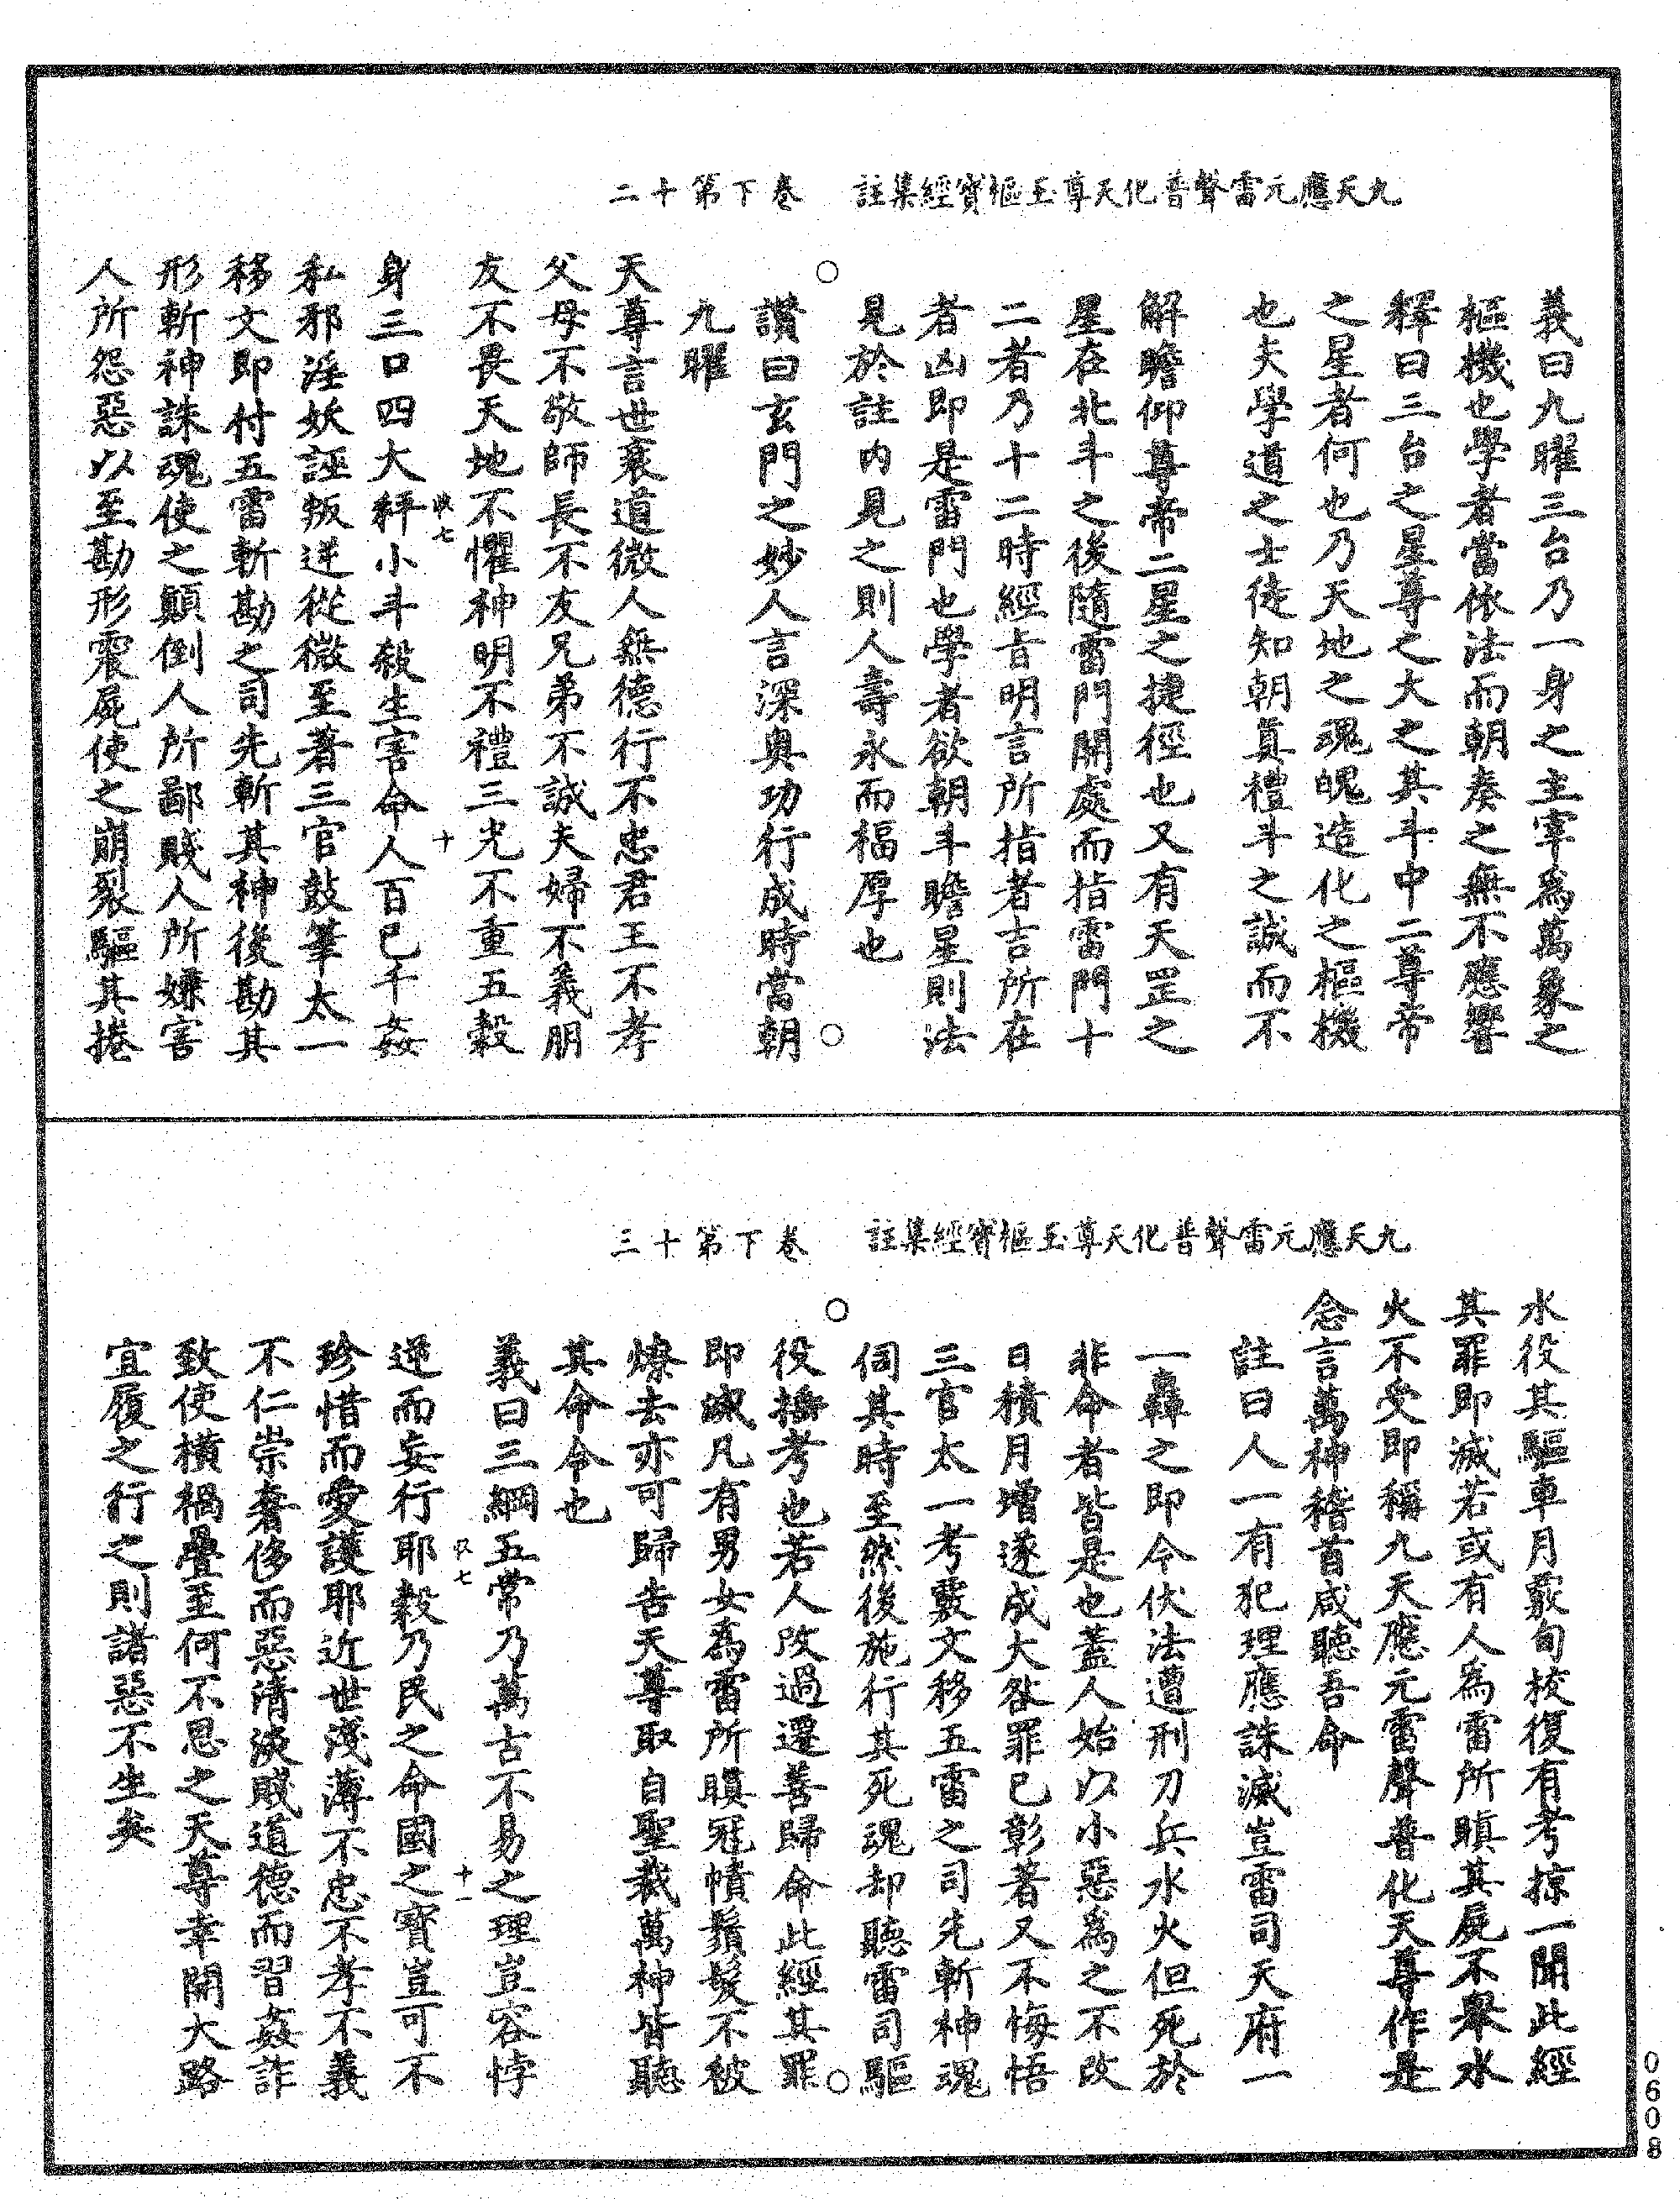 九天應元雷聲普化天尊玉樞寶經集註　卷下第十二
義曰九曜三台乃一身之主宰為萬象之
樞機也學者當依法而朝奏之無不應響
釋曰三台之星尊之大之其斗中二尊帝
之星者何也乃天地之魂魄造化之樞機
也夫學道之士徒知朝真禮斗之誠而不
解瞻仰尊帝二星之捷徑也又有天罡之
星在北斗之後隨雷門開處而指雷門十
二者乃十二時經旨明言所指者吉所在
者凶即是雷門也學者欲朝斗瞻星則法
見於註內見之則人壽永而福厚也
讚曰玄門之妙人言深奧功行成時當朝
九曜
天尊言世衰道微人無德行不忠君王不孝
父母不敬師長不友兄弟不誠夫婦不義朋
友不畏天地不懼神明不禮三光不重五穀
身三口四大秤小斗殺生害命人百己千姦
私邪淫妖誣叛逆從微至著三官鼓筆太一
移文即付五雷斬勘之司先斬其神後勘其
形斬神誅魂使之顛倒人所鄙賤人所嫌害
人所怨惡以至勘形震屍使之崩裂驅其捲
九天應元雷聲普化天尊玉樞寶經集註　卷下第十三
水役其驅車月覈旬校復有考掠一聞此經
其罪即滅若或有人為雷所瞋其屍不舉水
火不受即稱九天應元雷聲普化天尊作是
念言萬神稽首咸聽吾命
註曰人一有犯理應誅滅豈雷司天府一
一轟之即今伏法遭刑刀兵水火但死於
非命者皆是也蓋人始以小惡為之不改
日積月增遂成大咎罪已彰著又不悔悟
三官太一考覈文移五雷之司先斬神魂
伺其時至然後施行其死魂却聽雷司驅
役搖考也若人改過遷善歸命此經其罪
即滅凡有男女為雷所瞋冠幘鬚髮不被
燎去亦可歸告天尊取自聖裁萬神皆聽
其命令也
義曰三綱五常乃萬古不易之理豈容悖
逆而妄行耶穀乃民之命國之寶豈可不
珍惜而愛護耶近世淺薄不忠不孝不義
不仁崇奢侈而惡清淡賤道德而習姦詐
致使橫禍疊至何不思之天尊幸開大路
宜履之行之則諸惡不生矣
0608